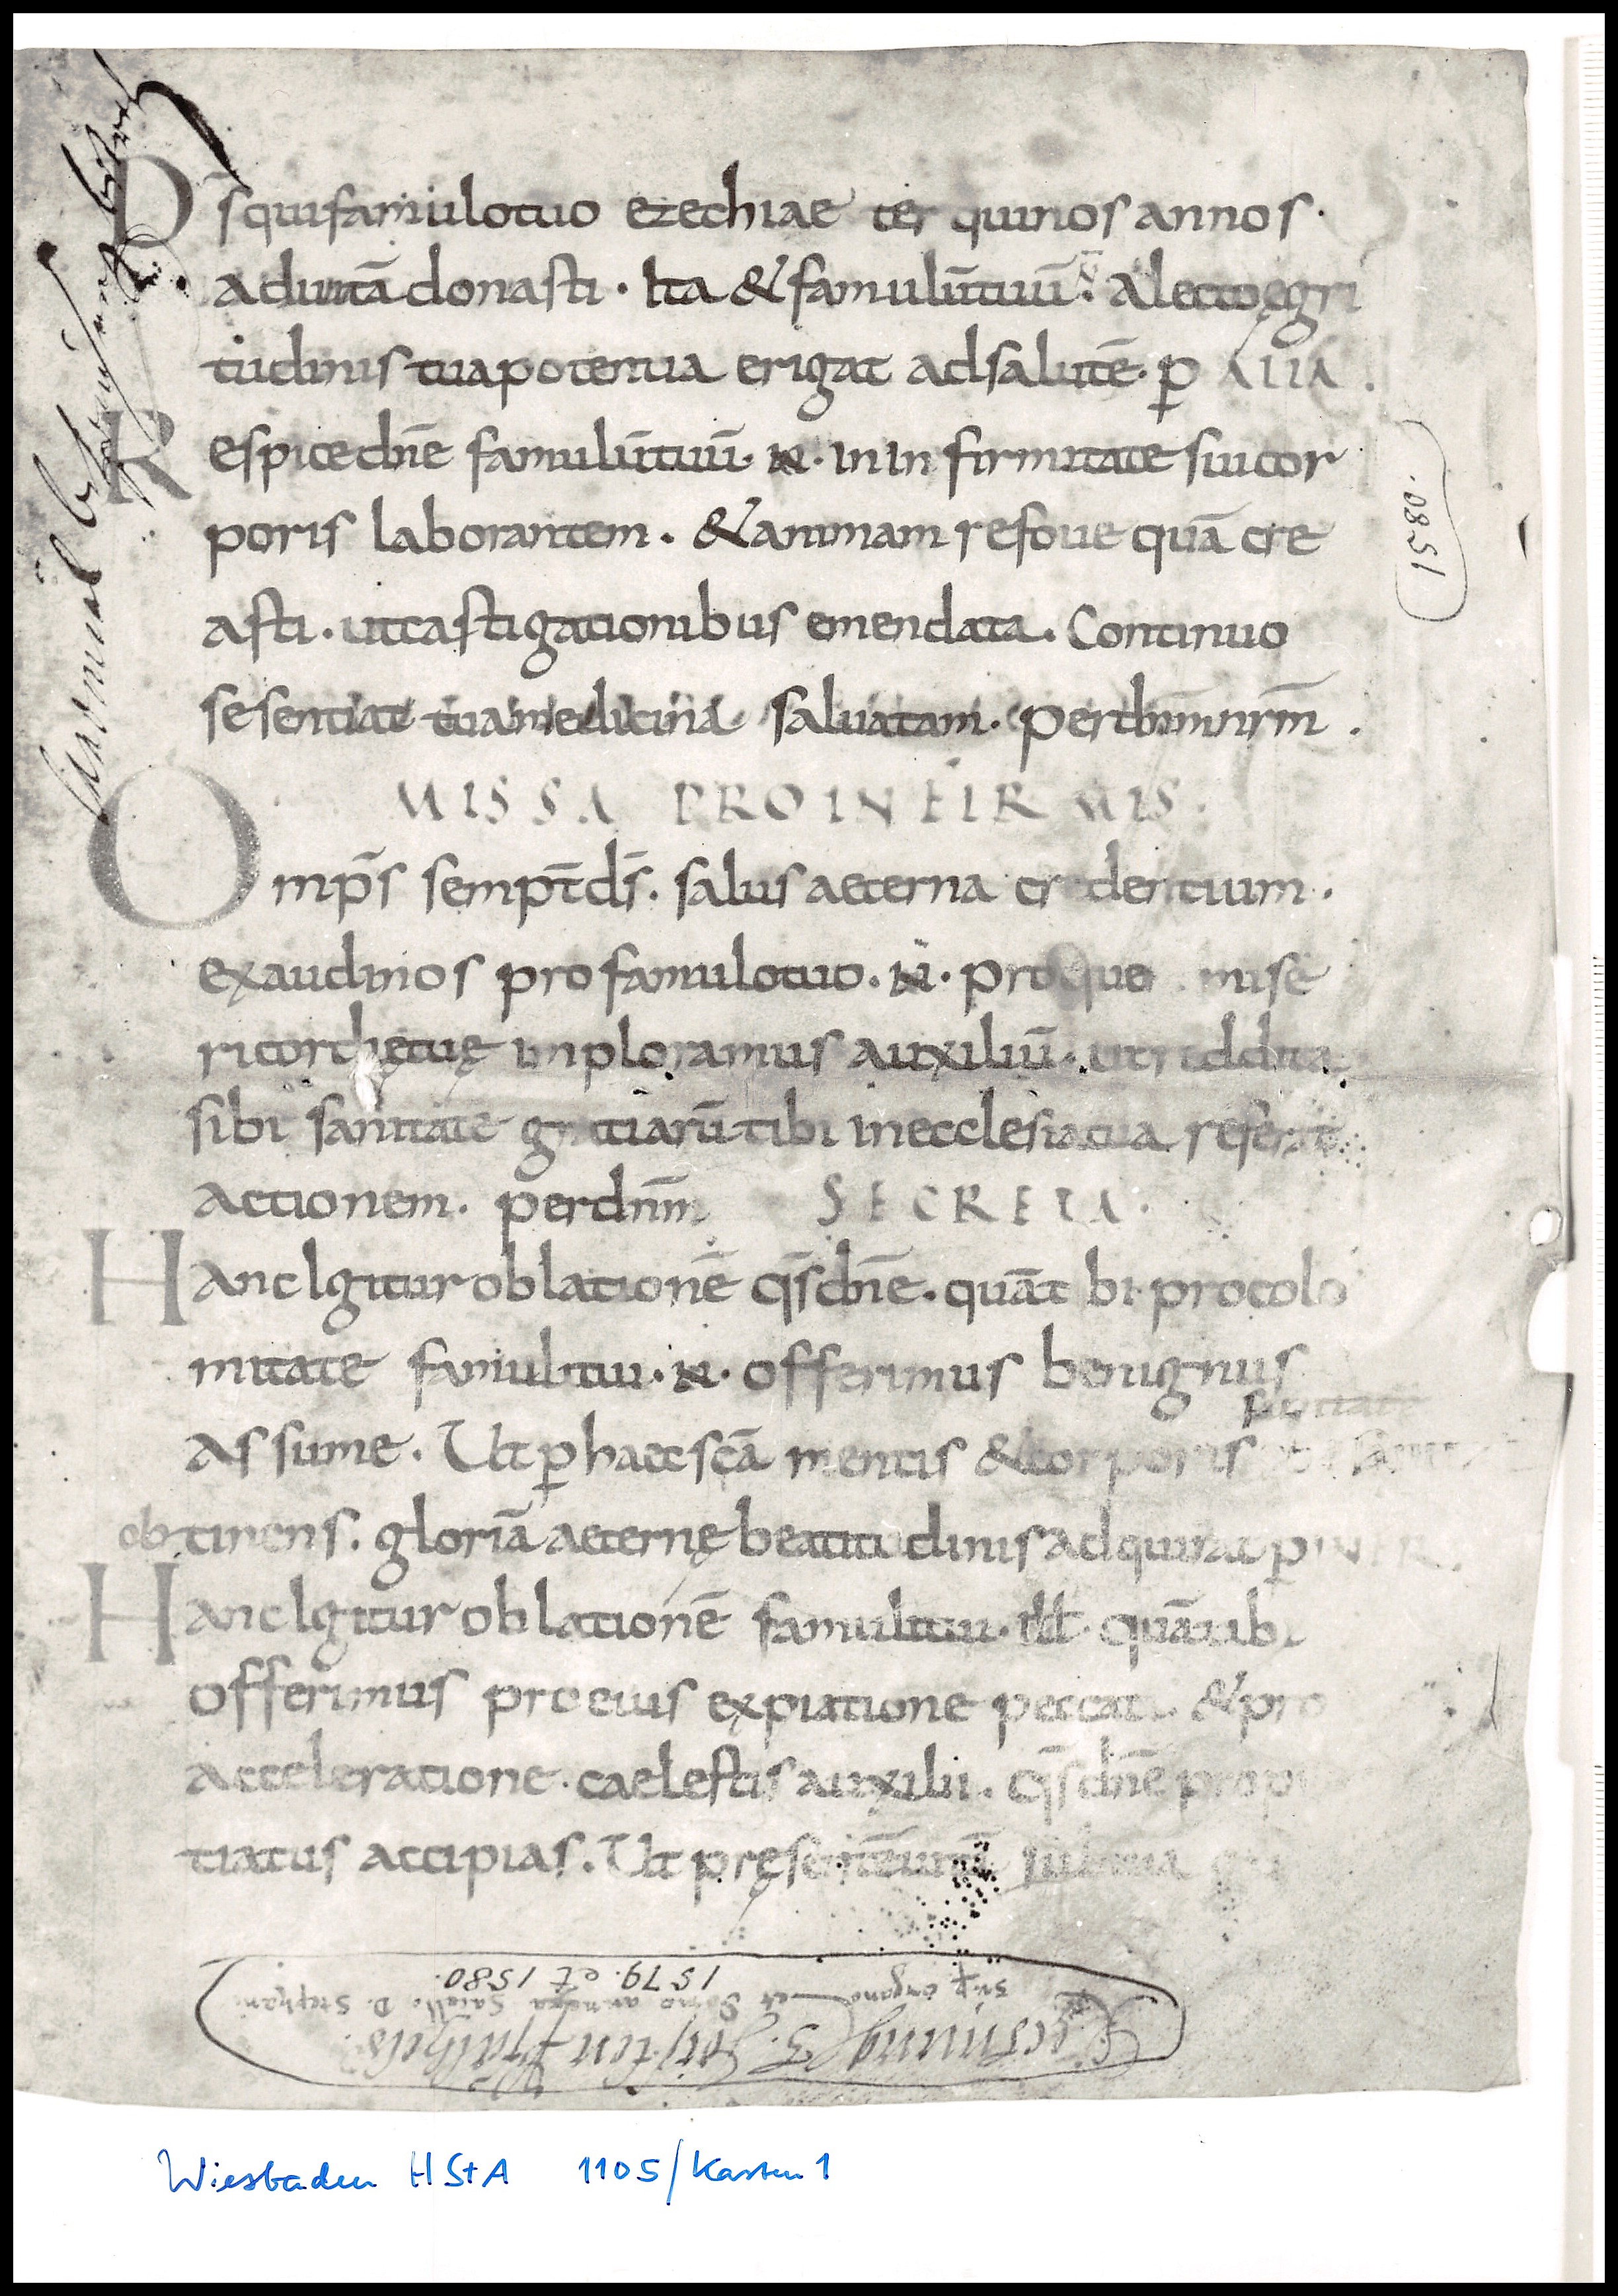 Ds̄ quifamulotuo ezechiae ter quinos annos.
aduitā donasti. Ita & famulūtuū. N̄. Alectoęgri
tudinis tuapotentia erigat adsalutē. p̱ ALIA.
Respicedn̄e famulūtuū. N. inInfirmitate suicor
poris laborantem. & animam refoue quā cre
asti. utcastigationibus emendata. Continuo
sesentiat tuamedicina saluatam. perdn̄mnrm̄.
MISSA PROINFIRMIS.
Omp̄s semp̄tds̄. salus aeterna credentium.
exaudinos pro famulotuo. N̄. Proquo mise
ricordiętuę imploramus auxiliū. utreddita
sibi sanitate gratiarū tibi inecclesiatua referat
actionem. perdn̄m SECRETA.
Hanc Igitur oblationē qs̄dn̄e. quāt bi procolo
mitate famulitui. N. offerimus benignus
sanitatē
assume. Ut p̱ haecscā mentis & corporis
obtinens. gloriā aeternę beatitudinis adquirat p̱ INFR.
Hanc Igitur oblationē famulitui. ill. quātibi
offerimus proeius expiatione peccati. & pro
acceleratione. caelestis auxilii. qs̄dn̄e propi
tiatus accipias. Ut pręsentēuitā subtua
1580.
1579. et 1580.
Wiesbaden HStA 1105/Kasten 1